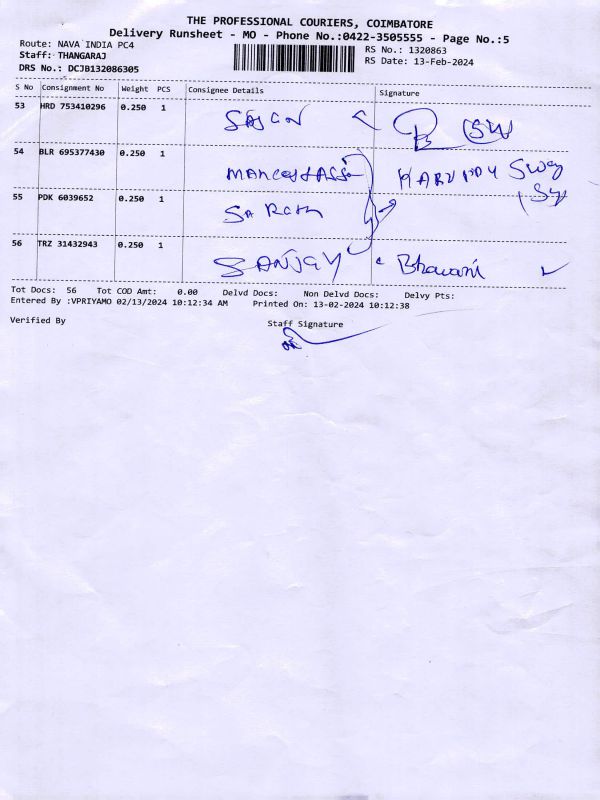 THE PROFESSIONAL COURIERS, COIMBATORE
Delivery Runsheet - MO - Phone No.:0422-3505555 - Page No.:5
Route: NAVA INDIA PC4 RS No.: 1320863
Staff: THANGARAJ RS Date: 13-Feb-2024
DRS No.: DCJB132086305
S No Consignment No Weight PCS Consignee Details Signature
53 HRD 753410296 0.250 1
54 BLR 695377430 0.250 1
55 PDK 6039652 0.250 1
56 TRZ 31432943 0.250 1 SANJAY Bhavani
Tot Docs: 56 Tot COD Amt: 0.00 Delvd Docs: Non Delvd Docs: Delvy Pts:
Entered By :VPRIYAMO 02/13/2024 10:12:34 AM Printed On: 13-02-2024 10:12:38
Verified By Staff Signature